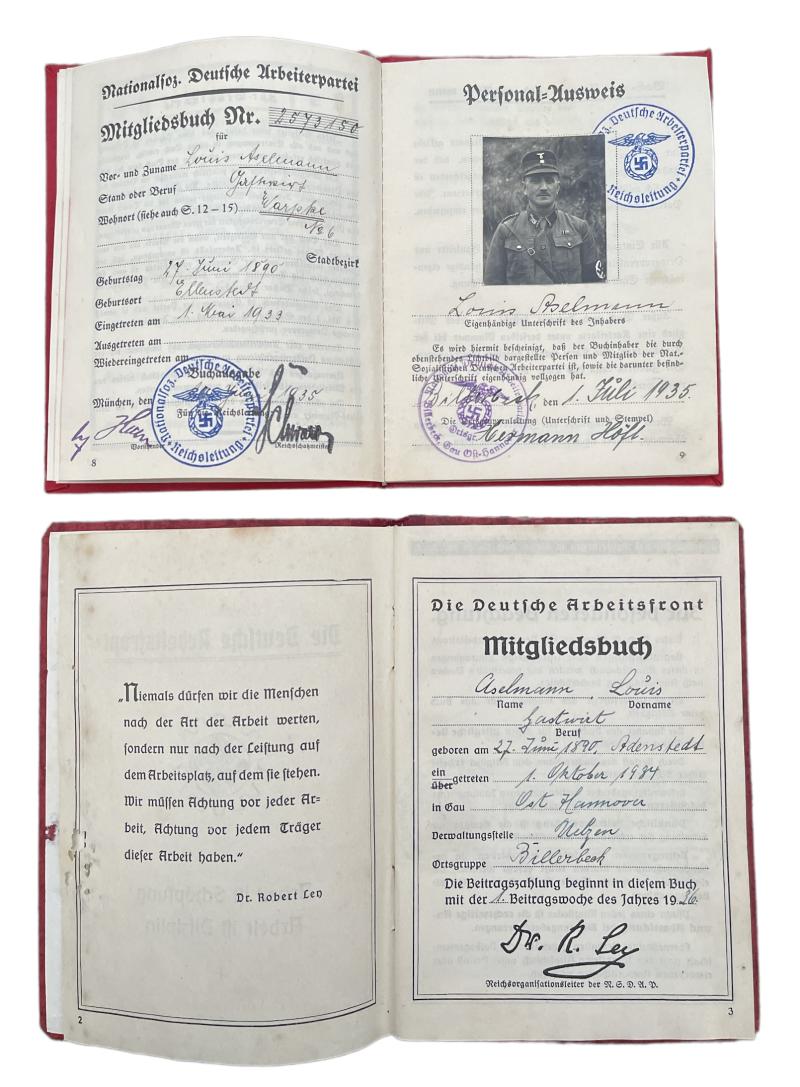 Nationalsoz. Deutsche Arbeiterpartei
Mitgliedsbuch Nr. 2573150
für
Vor- und Zuname Louis Aselmann
Stand oder Beruf Gastwirt
Wohnort (siehe auch S. 12—15) Warpke
No 6
Stadtbezirk
Geburtstag 27. Juni 1890
Geburtsort Ellenstedt
Eingetreten am 1. Mai 1933
Ausgetreten am
Wiedereingetreten am
Buchausgabe
München, den 1935
Für die Reichsleitung
Vorsitzender Reichsschatzmeister
Nationalsoz. Deutsche Arbeiterpartei
Reichsleitung
8
Personal-Ausweis
soz. Deutsche Arbeiterpartei
Reichsleitung
Louis Aselmann
Eigenhändige Unterschrift des Inhabers
Es wird hiermit bescheinigt, daß der Buchinhaber die durch
obenstehendes Lichtbild dargestellte Person und Mitglied der Nat.-
Sozialistischen Deutschen Arbeiterpartei ist, sowie die darunter befind-
liche Unterschrift eigenhändig vollzogen hat.
Billerbeck, den 1. Juli 1935.
Die (Unterschrift und Stempel)
Hermann Höft.
Billerbeck, Gau Ost-Hannover
9
„Niemals dürfen wir die Menschen
nach der Art der Arbeit werten,
sondern nur nach der Leistung auf
dem Arbeitsplatz, auf dem sie stehen.
Wir müssen Achtung vor jeder Ar-
beit, Achtung vor jedem Träger
dieser Arbeit haben.“
Dr. Robert Ley
2
Die Deutsche Arbeitsfront
Mitgliedsbuch
Aselmann, Louis
Name Vorname
Gastwirt
Beruf
geboren am 27. Juni 1890, Adenstedt
ein
über getreten 1. Oktober 1934
in Gau Ost Hannover
Verwaltungsstelle Uelzen
Ortsgruppe Billerbeck
Die Beitragszahlung beginnt in diesem Buch
mit der 1. Beitragswoche des Jahres 1936.
Dr. R. Ley
Reichsorganisationsleiter der N.S.D.A.P.
3